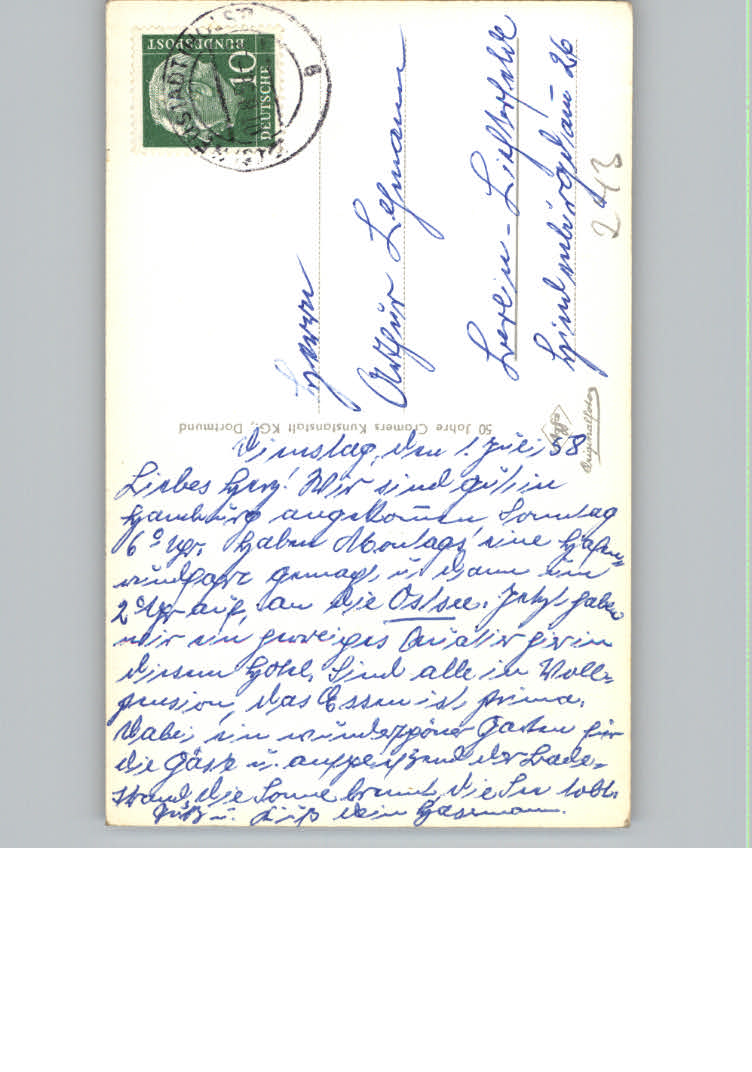 DEUTSCHE
BUNDESPOST
10
Herrn
Arthur Lehmann
Berlin-Lichterfelde
Hindenburgdamm 26
243
50 Jahre Cramers Kunstanstalt KG., Dortmund
Agfa
Originalfoto
Dienstag, den 1. Juli 58
Liebes Herz! Wir sind gut in
Hamburg angekommen Sonntag
6 Uhr. Haben Montags eine Hafen-
rundfahrt gemacht u. dann um
2 Uhr auf, an die Ostsee. Jetzt haben
wir ein Quatier hier in
diesem Hotel. Sind alle in Voll-
pension, das Essen ist prima.
Dabei ein wunderschöner Garten für
die Gäste u. anschließend der Bade-
strand, die Sonne brennt, die See tobt.
Gruß u. Kuß dein Hasemann.